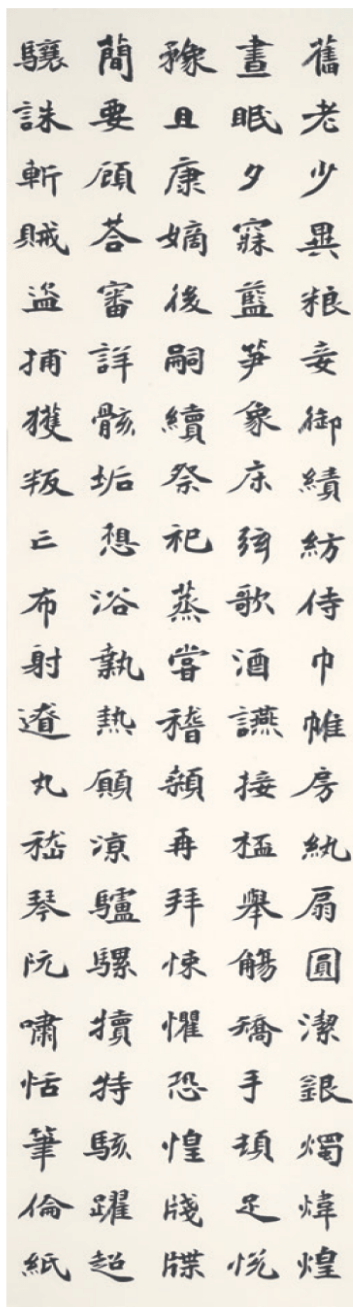 舊老少異粮妾御績紡侍巾帷房紈扇圓潔銀燭煒煌
晝眠夕寐藍笋象床弦歌酒讌接杯舉觴矯手頓足悅
豫且康嫡後嗣續祭祀蒸嘗稽顙再拜悚懼恐惶牋牒
簡要顧荅審詳骸垢想浴執熱願涼驢騾犢特駭躍超
驤誅斬賊盗捕獲叛亡布射遼丸嵇琴阮嘯恬筆倫紙